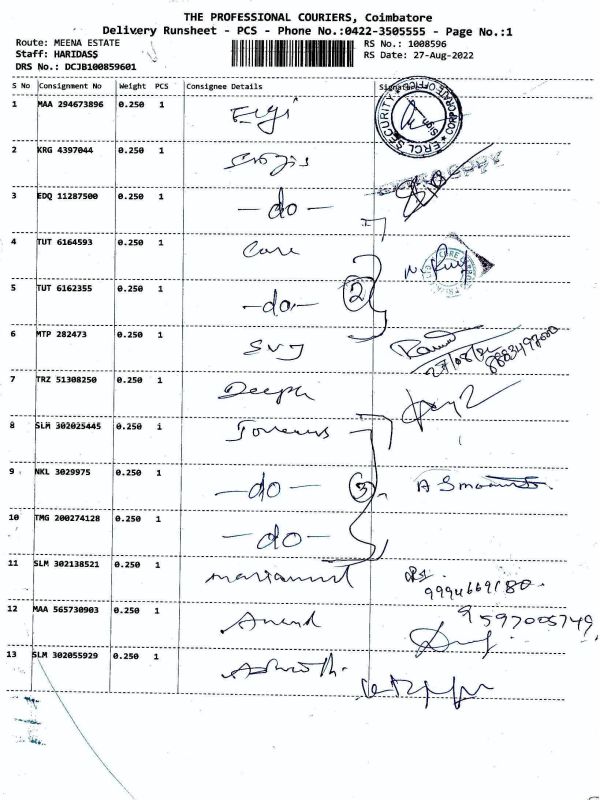 THE PROFESSIONAL COURIERS, Coimbatore
Delivery Runsheet - PCS - Phone No.:0422-3505555 - Page No.:1
Route: MEENA ESTATE
RS No.: 1008596
Staff: HARIDASS
RS Date: 27-Aug-2022
DRS No.: DCJB100859601
S No Consignment No Weight PCS Consignee Details Signature
1 MAA 294673896 0.250 1 Elgi
SECURITY OFFICE CORPORATE ERCL
2 KRG 4397044 0.250 1
3 EDQ 11287500 0.250 1 -do-
4 TUT 6164593 0.250 1 Care
5 TUT 6162355 0.250 1 -do- 2
6 MTP 282473 0.250 1 SVJ
27/08/22
7 TRZ 51308250 0.250 1 Deepa
8 SLM 302025445 0.250 1
9 NKL 3029975 0.250 1 -do- 3
10 TMG 200274128 0.250 1 -do-
11 SLM 302138521 0.250 1
9994669180
12 MAA 565730903 0.250 1 Anand
9597005749
13 SLM 302055929 0.250 1